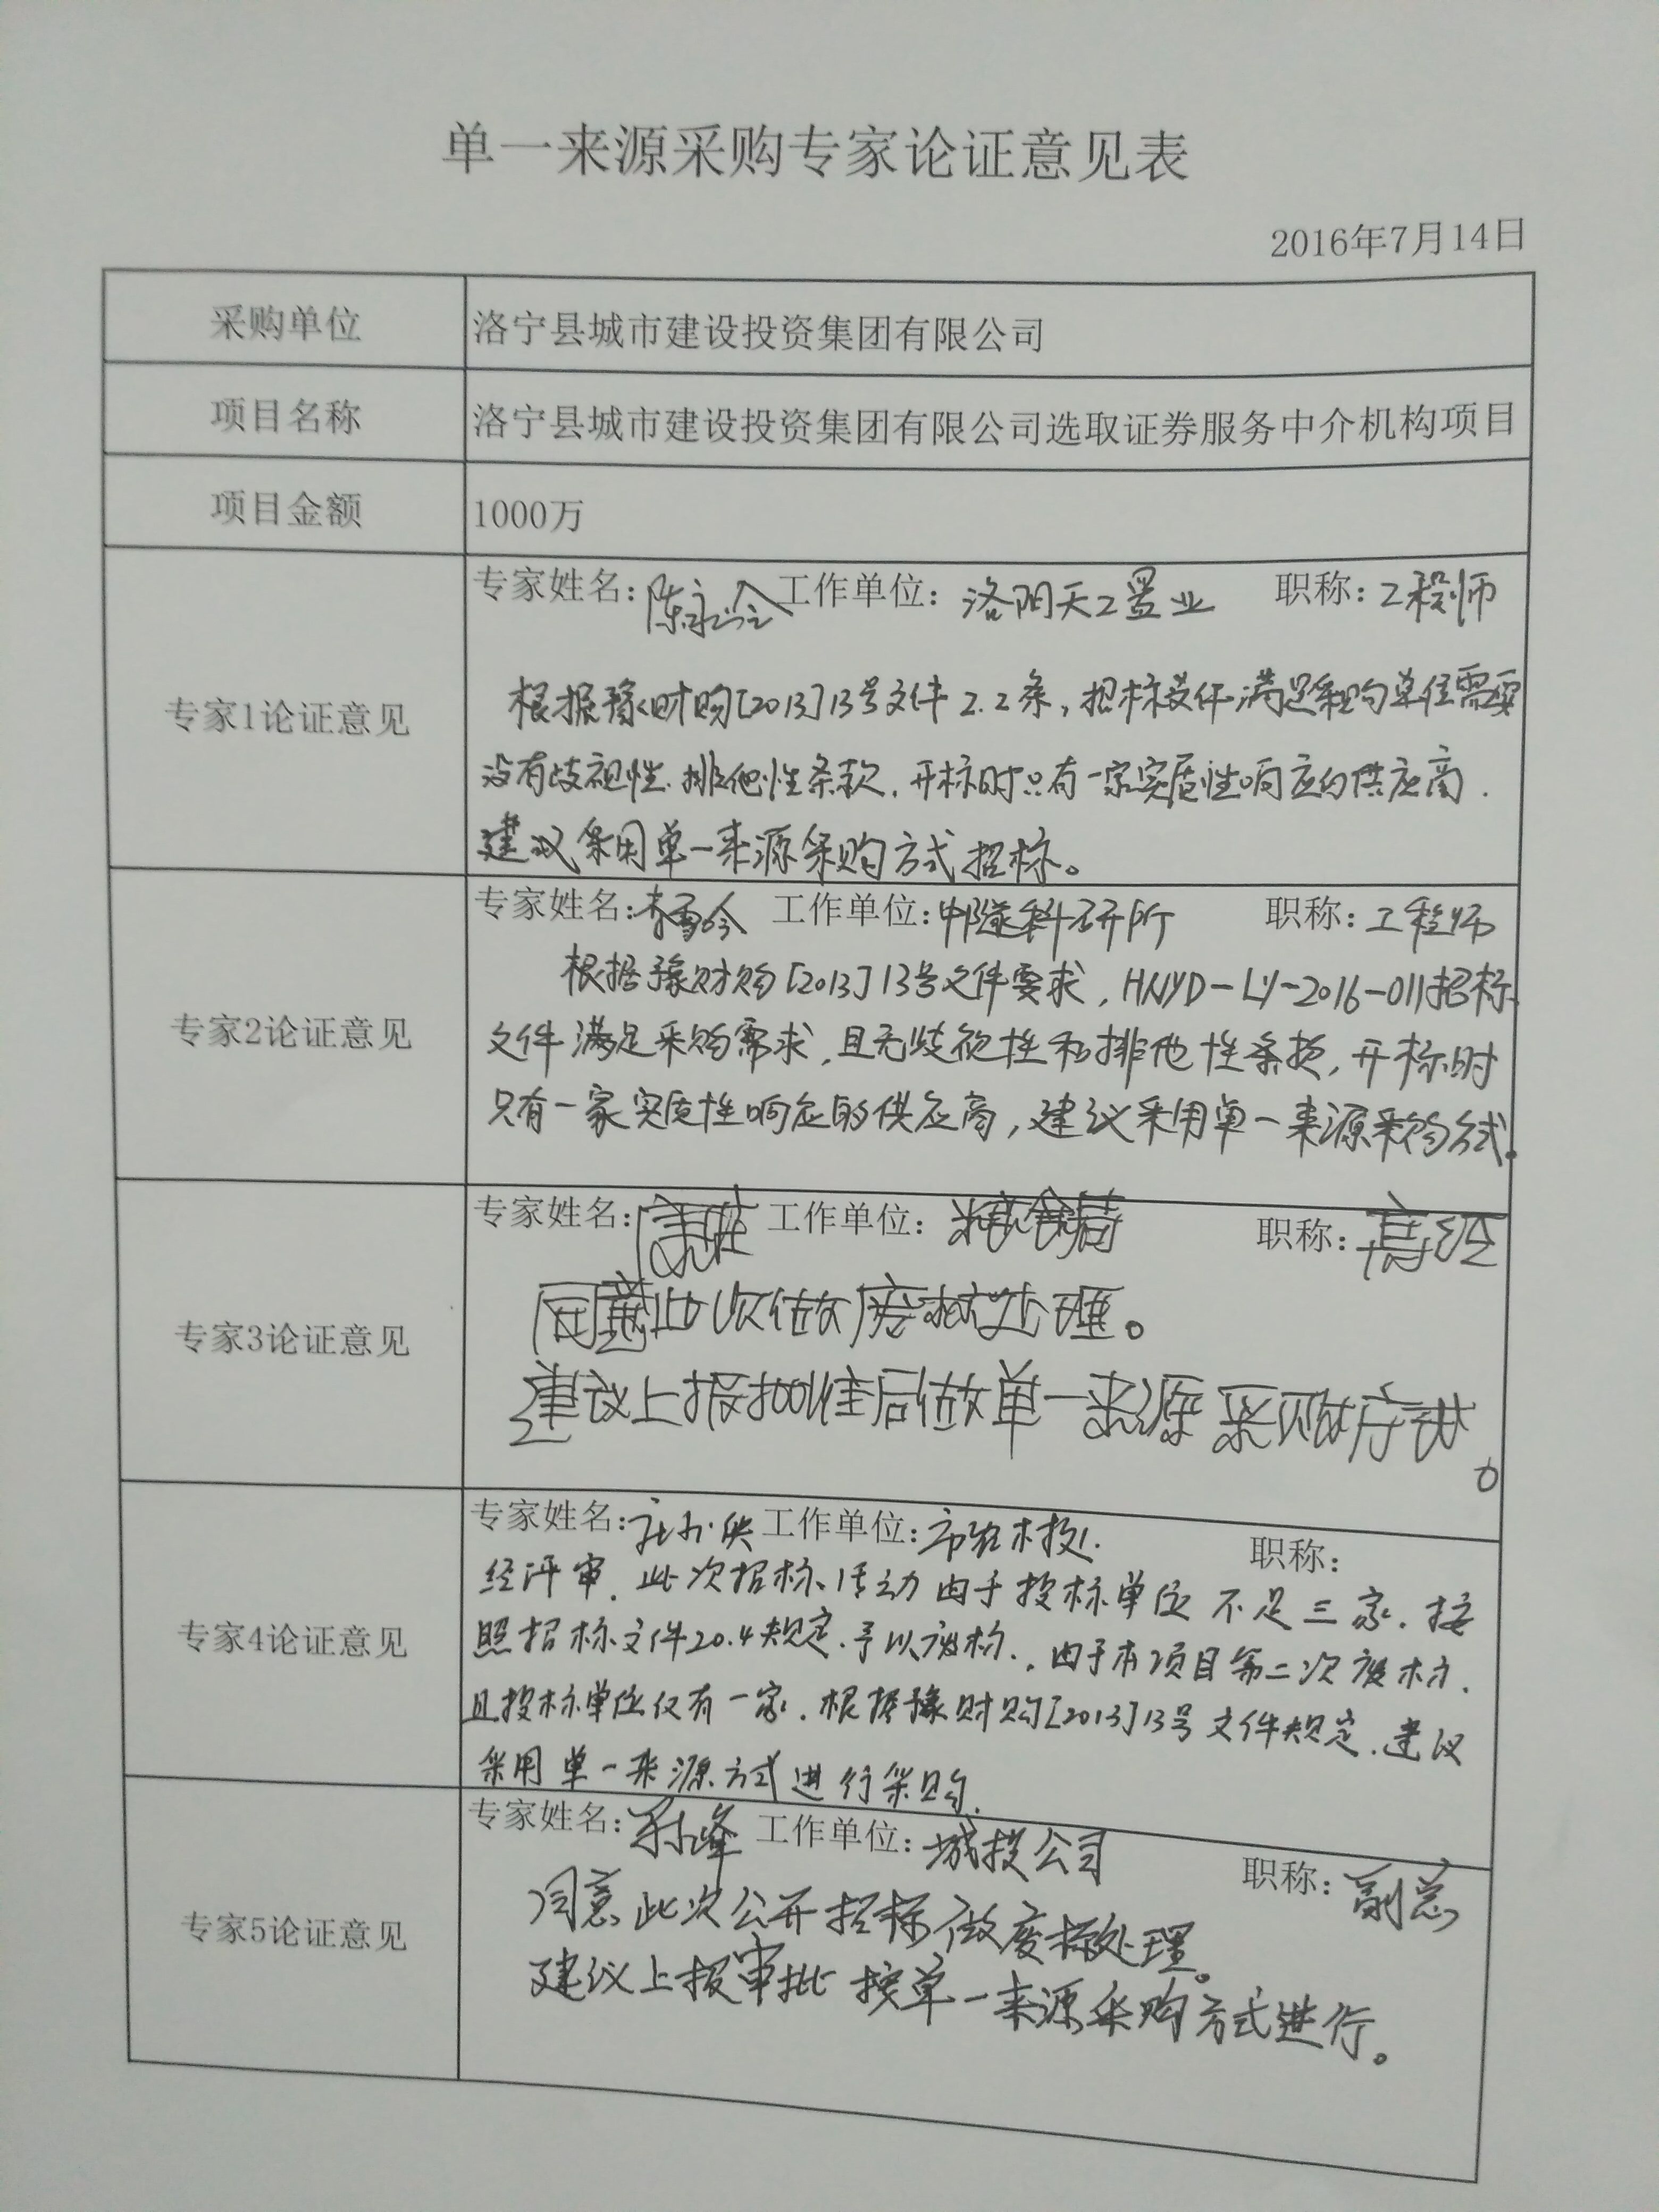 单一来源采购专家论证意见表
2016年7月14日
采购单位 洛宁县城市建设投资集团有限公司
项目名称 洛宁县城市建设投资集团有限公司选取证券服务中介机构项目
项目金额 1000万
专家1论证意见
专家姓名: 工作单位: 洛阳天工置业 职称: 工程师
根据豫财购[2013]13号文件2.2条,招标文件满足采购单位需要
没有歧视性.排他性条款.开标时只有一家实质性响应的供应商.
建议采用单一来源采购方式招标。
专家2论证意见
专家姓名: 工作单位: 中隧科研所 职称: 工程师
根据豫财购[2013]13号文件要求,HNYD-LY-2016-011招标
文件满足采购需求,且无歧视性和排他性条款,开标时
只有一家实质性响应的供应商,建议采用单一来源采购方式。
专家3论证意见
专家姓名: 工作单位: 职称: 高经
同意此次做废标处理。
建议上报批准后做单一来源采购序试。
专家4论证意见
专家姓名: 工作单位: 职称:
经评审.此次招标活动由于投标单位不足三家.按
照招标文件20.4规定.予以废标.由于本项目第二次废标.
且投标单位仅有一家.根据豫财购[2013]13号文件规定.建议
采用单一来源方式进行采购.
专家5论证意见
专家姓名: 工作单位: 城投公司 职称: 副总
同意此次公开招标做废标处理。
建议上报审批按单一来源采购方式进行。